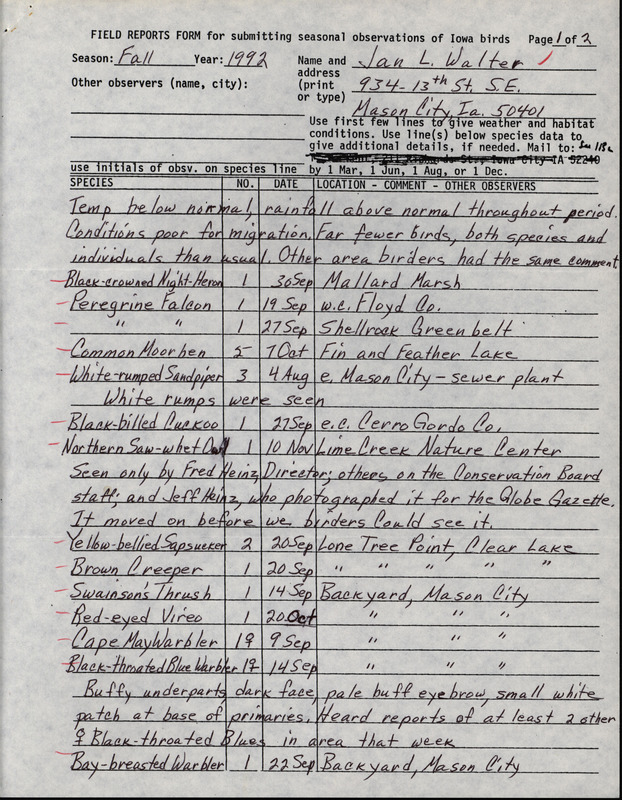 FIELD REPORTS FORM for submitting seasonal observations of Iowa birds Page 1 of 2
Season: Fall Year: 1992 Name and address (print or type) Jan L. Walter
Other observers (name, city): 934-13th St. S.E.
Mason City, Ia. 50401
Use first few lines to give weather and habitat
conditions. Use line(s) below species data to
give additional details, if needed. Mail to:
Iowa City IA 52240
use initials of obsv. on species line by 1 Mar, 1 Jun, 1 Aug, or 1 Dec.
SPECIES NO. DATE LOCATION - COMMENT - OTHER OBSERVERS
Temp below normal, rainfall above normal throughout period.
Conditions poor for migration. Far fewer birds, both species and
individuals than usual. Other area birders had the same comment
Black-crowned Night-Heron 1 30 Sep Mallard Marsh
Peregrine Falcon 1 19 Sep w.c. Floyd Co.
" " 1 27 Sep Shellrock Greenbelt
Common Moorhen 5 7 Oct Fin and Feather Lake
White-rumped Sandpiper 3 4 Aug e. Mason City - sewer plant
White rumps were seen
Black-billed Cuckoo 1 27 Sep e.c. Cerro Gordo Co.
Northern Saw-whet Owl 1 10 Nov Lime Creek Nature Center
Seen only by Fred Heinz, Director; others on the Conservation Board
staff; and Jeff Heinz, who photographed it for the Globe Gazette.
It moved on before we birders could see it.
Yellow-bellied Sapsucker 2 20 Sep Lone Tree Point, Clear Lake
Brown Creeper 1 20 Sep " " " " "
Swainson's Thrush 1 14 Sep Backyard, Mason City
Red-eyed Vireo 1 20 Oct " " "
Cape May Warbler 1♀ 9 Sep " " "
Black-throated Blue Warbler 1♀ 14 Sep " " "
Buffy underparts, dark face, pale buff eyebrow, small white
patch at base of primaries. Heard reports of at least 2 other
♀ Black-throated Blues in area that week
Bay-breasted Warbler 1 22 Sep Backyard, Mason City